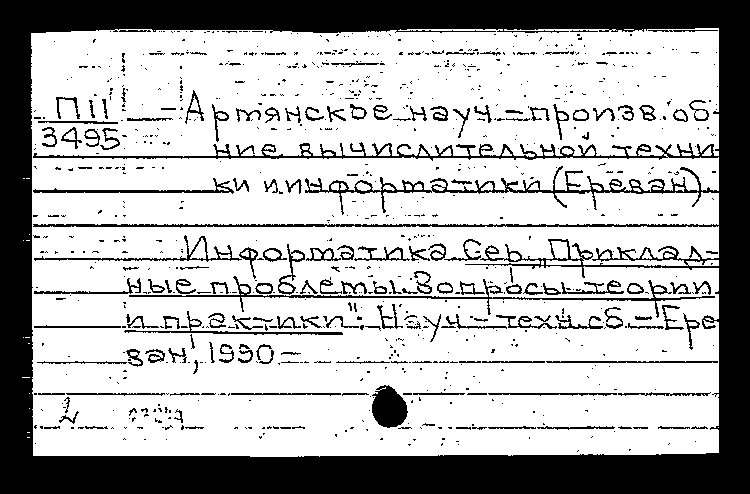 П11 Артянское науч-произв. об-
3495
ние вычислительной техни-
ки и информатики (Ереван).
Информатика Сер. „Приклад-
ные проблемы. Вопросы теории
и практики": Науч-техн. сб. - Ере-
ван, 1990 -
2